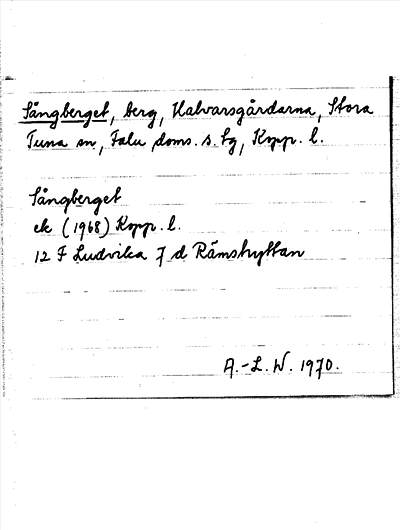 Sångberget, berg, Halvarsgårdarna, Stora
Tuna sn, Falu doms. s. tg, Kopp. l.
Sångberget
ek (1968) Kopp. l.
12 F Ludvika 7 d Rämshyttan
A.-L. W. 1970.